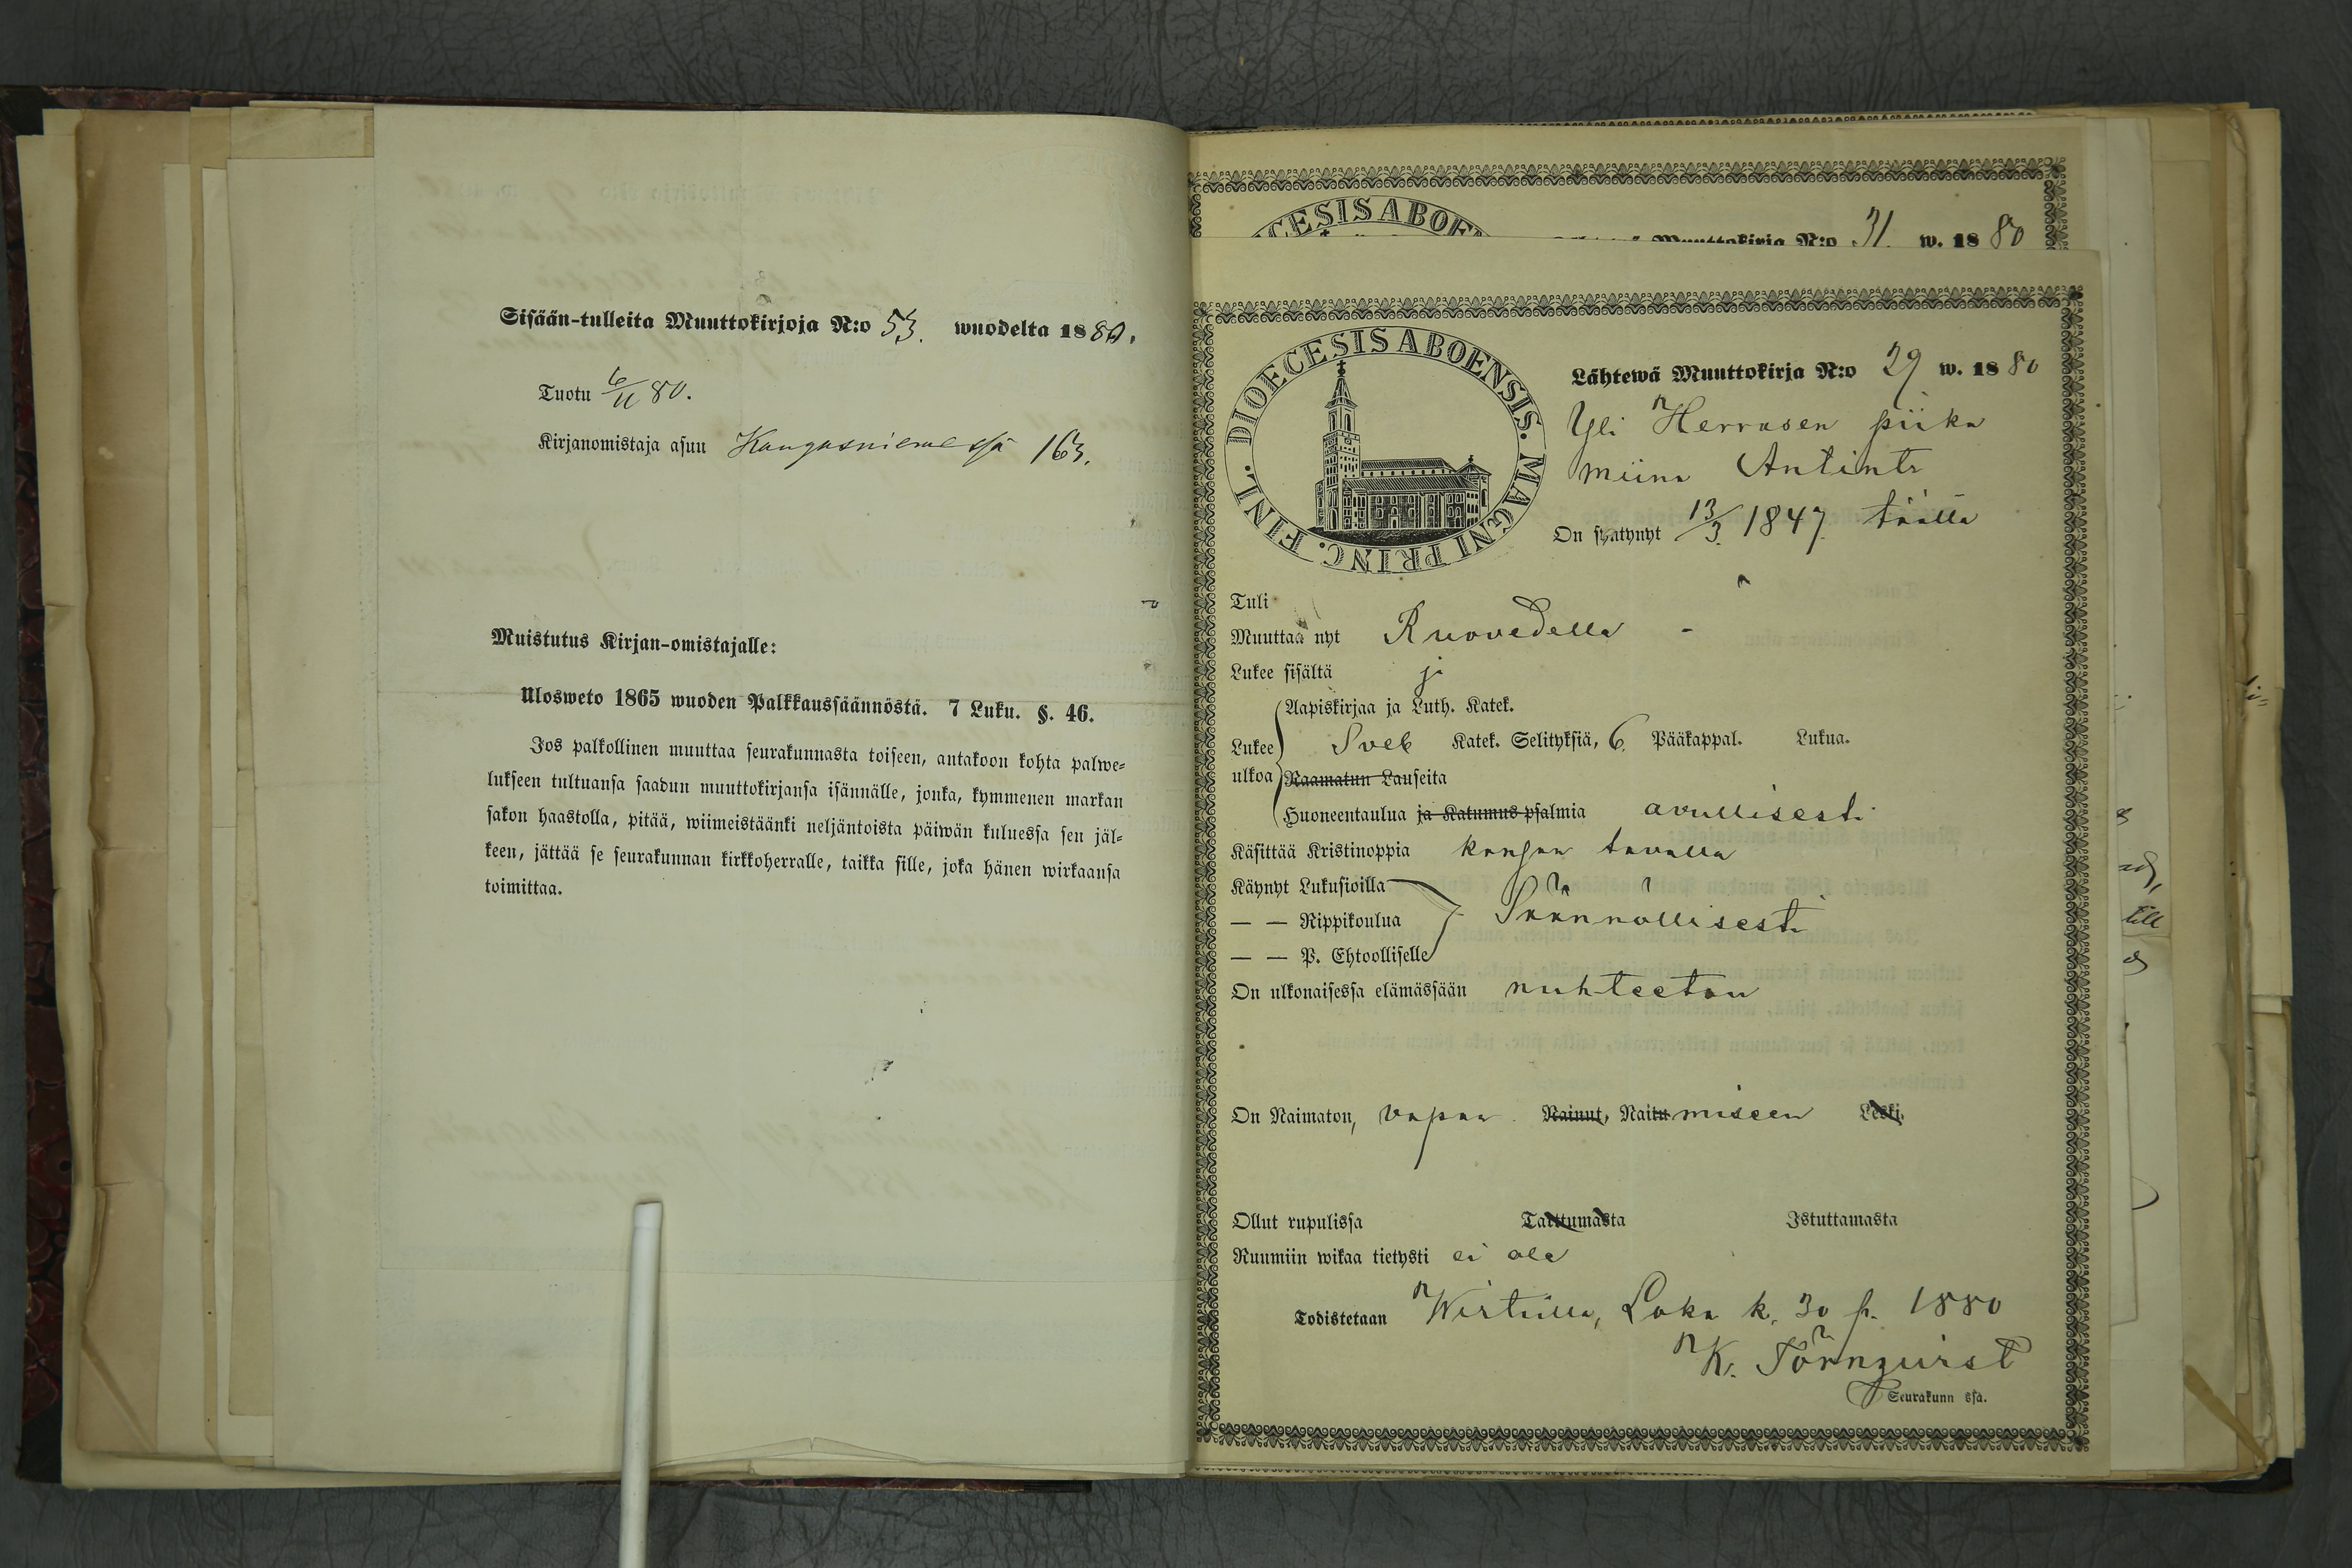 Sisään-tulleita Muuttokirjoja N:o 53. wuodelta 1880.
Tuotu 6/11 80.
Kirjanomistaja asuu Kangasniemessä 163.
Muistutus Kirjan-omistajalle:
Ulosweto 1865 wuoden Palkkaussäännöstä. 7 Luku. §. 46.
Jos palkollinen muuttaa seurakunnasta toiseen, antakoon kohta palwe-
lukseen tultuansa saadun muuttokirjansa isännälle, jonka, kymmenen markan
sakon haastolla, pitää, wiimeistäänki neljäntoista päiwän kuluessa sen jäl-
keen, jättää se seurakunnan kirkkoherralle, taikka sille, joka hänen wirkaansa
toimittaa.
Muuttokirja N:o 31. w. 1880
DIOECESIS ABOENSIS. MAGNI PRINC. FINL.
Lähtewä Muuttokirja N:o 29 w. 1880
Yli Herrasen piika
Miina Antint
On syntynyt 13/3 1847. täällä
Tuli
Muuttaa nyt Ruovedelle -
Lukee sisältä
Aapiskirjaa ja Luth. Katek.
Lukee Sveb Katek. Selityksiä, 6. Pääkappal. Lukua.
ulkoa Raamatun Lauseita
Huoneentaulua ja Katumus-psalmia avullisesti
Käsittää Kristinoppia kansan tavalla
Käynyt Lukusioilla
— — Rippikoulua Säännöllisesti
— — P. Ehtoolliselle
On ulkonaisessa elämässään nuhteeton
On Naimaton, vapaa Nainut, Naitu miseen Leski,
Ollut rupulissa Tarttumasta Istuttamasta
Ruumiin wikaa tietysti ei ole
Todistetaan Loka k. 30 p. 1880
K. Törnqvist
Seurakunn ssa.